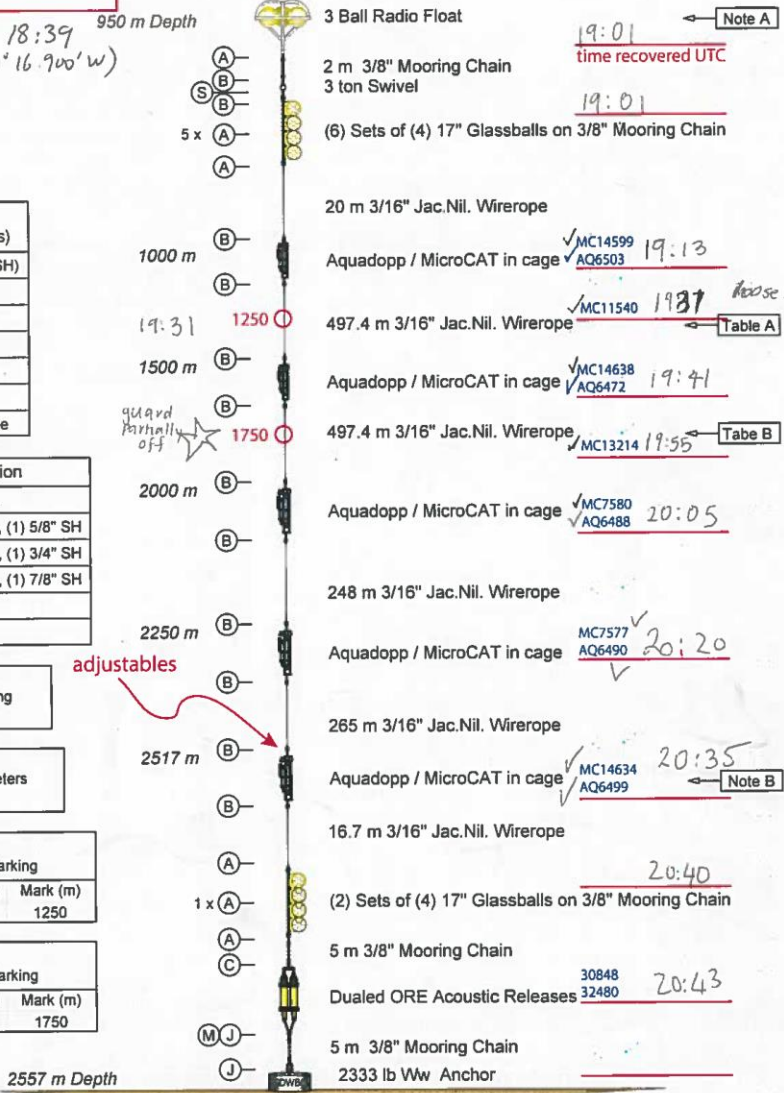 950 m Depth
18:39
16.900' W)
3 Ball Radio Float
Note A
19:01
time recovered UTC
A
B
S
B
2 m 3/8" Mooring Chain
3 ton Swivel
19:01
5 x A
(6) Sets of (4) 17" Glassballs on 3/8" Mooring Chain
A
20 m 3/16" Jac.Nil. Wirerope
s)
SH)
B
1000 m
Aquadopp / MicroCAT in cage
✓MC14599
✓AQ6503
19:13
B
19:31
1250
497.4 m 3/16" Jac.Nil. Wirerope
✓MC11540
Table A
B
1500 m
Aquadopp / MicroCAT in cage
✓MC14638
✓AQ6472
19:41
B
guard
partially
off
1750
497.4 m 3/16" Jac.Nil. Wirerope
✓MC13214 19:55
Tabe B
e
B
2000 m
Aquadopp / MicroCAT in cage
✓MC7580
✓AQ6488
20:05
B
tion
, (1) 5/8" SH
, (1) 3/4" SH
, (1) 7/8" SH
248 m 3/16" Jac.Nil. Wirerope
B
2250 m
Aquadopp / MicroCAT in cage
MC7577 ✓
AQ6490 ✓
20:20
B
adjustables
ng
265 m 3/16" Jac.Nil. Wirerope
B
2517 m
Aquadopp / MicroCAT in cage
✓MC14634
✓AQ6499
20:35
Note B
B
eters
16.7 m 3/16" Jac.Nil. Wirerope
A
20:40
1 x A
(2) Sets of (4) 17" Glassballs on 3/8" Mooring Chain
arking
Mark (m)
1250
A
5 m 3/8" Mooring Chain
C
Dualed ORE Acoustic Releases
30848
32480
20:43
arking
Mark (m)
1750
M J
5 m 3/8" Mooring Chain
J
2557 m Depth
DWB
2333 lb Ww Anchor